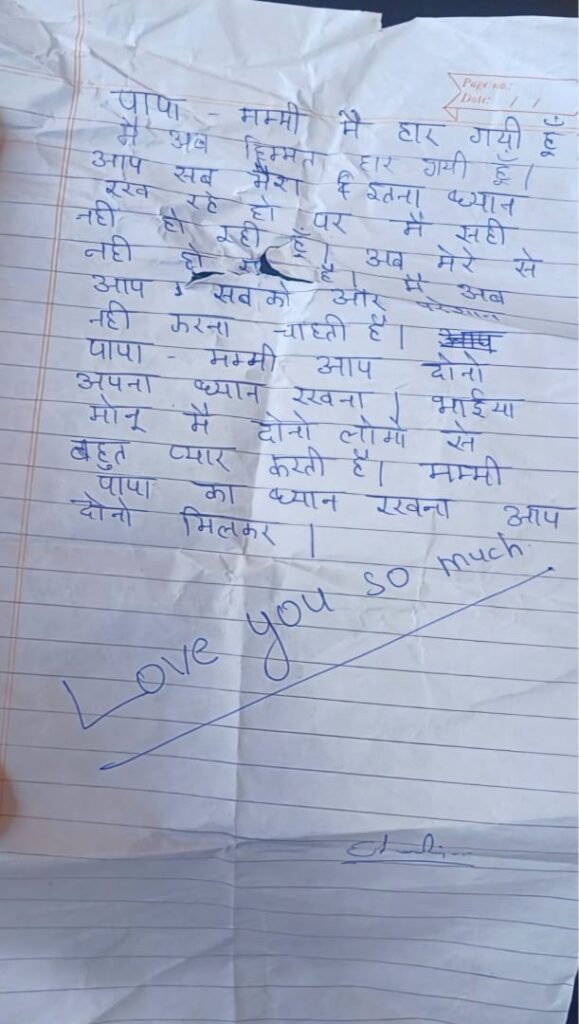 Page no.:
Date: / /
पापा - मम्मी मै हार गयी हूँ
मै अब हिम्मत हार गयी हूँ।
आप सब मेरा इतना ध्यान
रख रहे हो पर मै सही
नही हो रही हूँ। अब मेरे से
नही हो है।
आप सब को और मै अब
नही करना चाहती है।
पापा - मम्मी आप दोनो
अपना ध्यान रखना। भाईया
मोनू मै दोनो लोगो से
बहुत प्यार करती है। मम्मी
पापा का ध्यान रखना आप
दोनो मिलकर।
Love you so much.